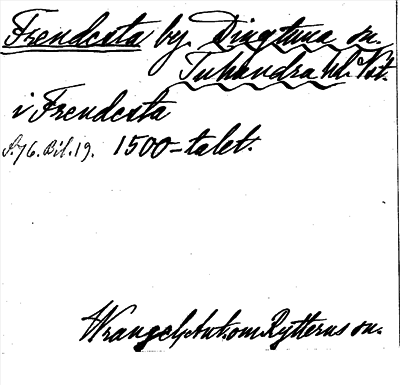 Frendesta by. Dingtuna sn.
Tuhundra hd. Vst.
i Frendesta
S. 76. Bil. 19. 1500-talet.
Wrangel, Ant. om Rytterns sn.